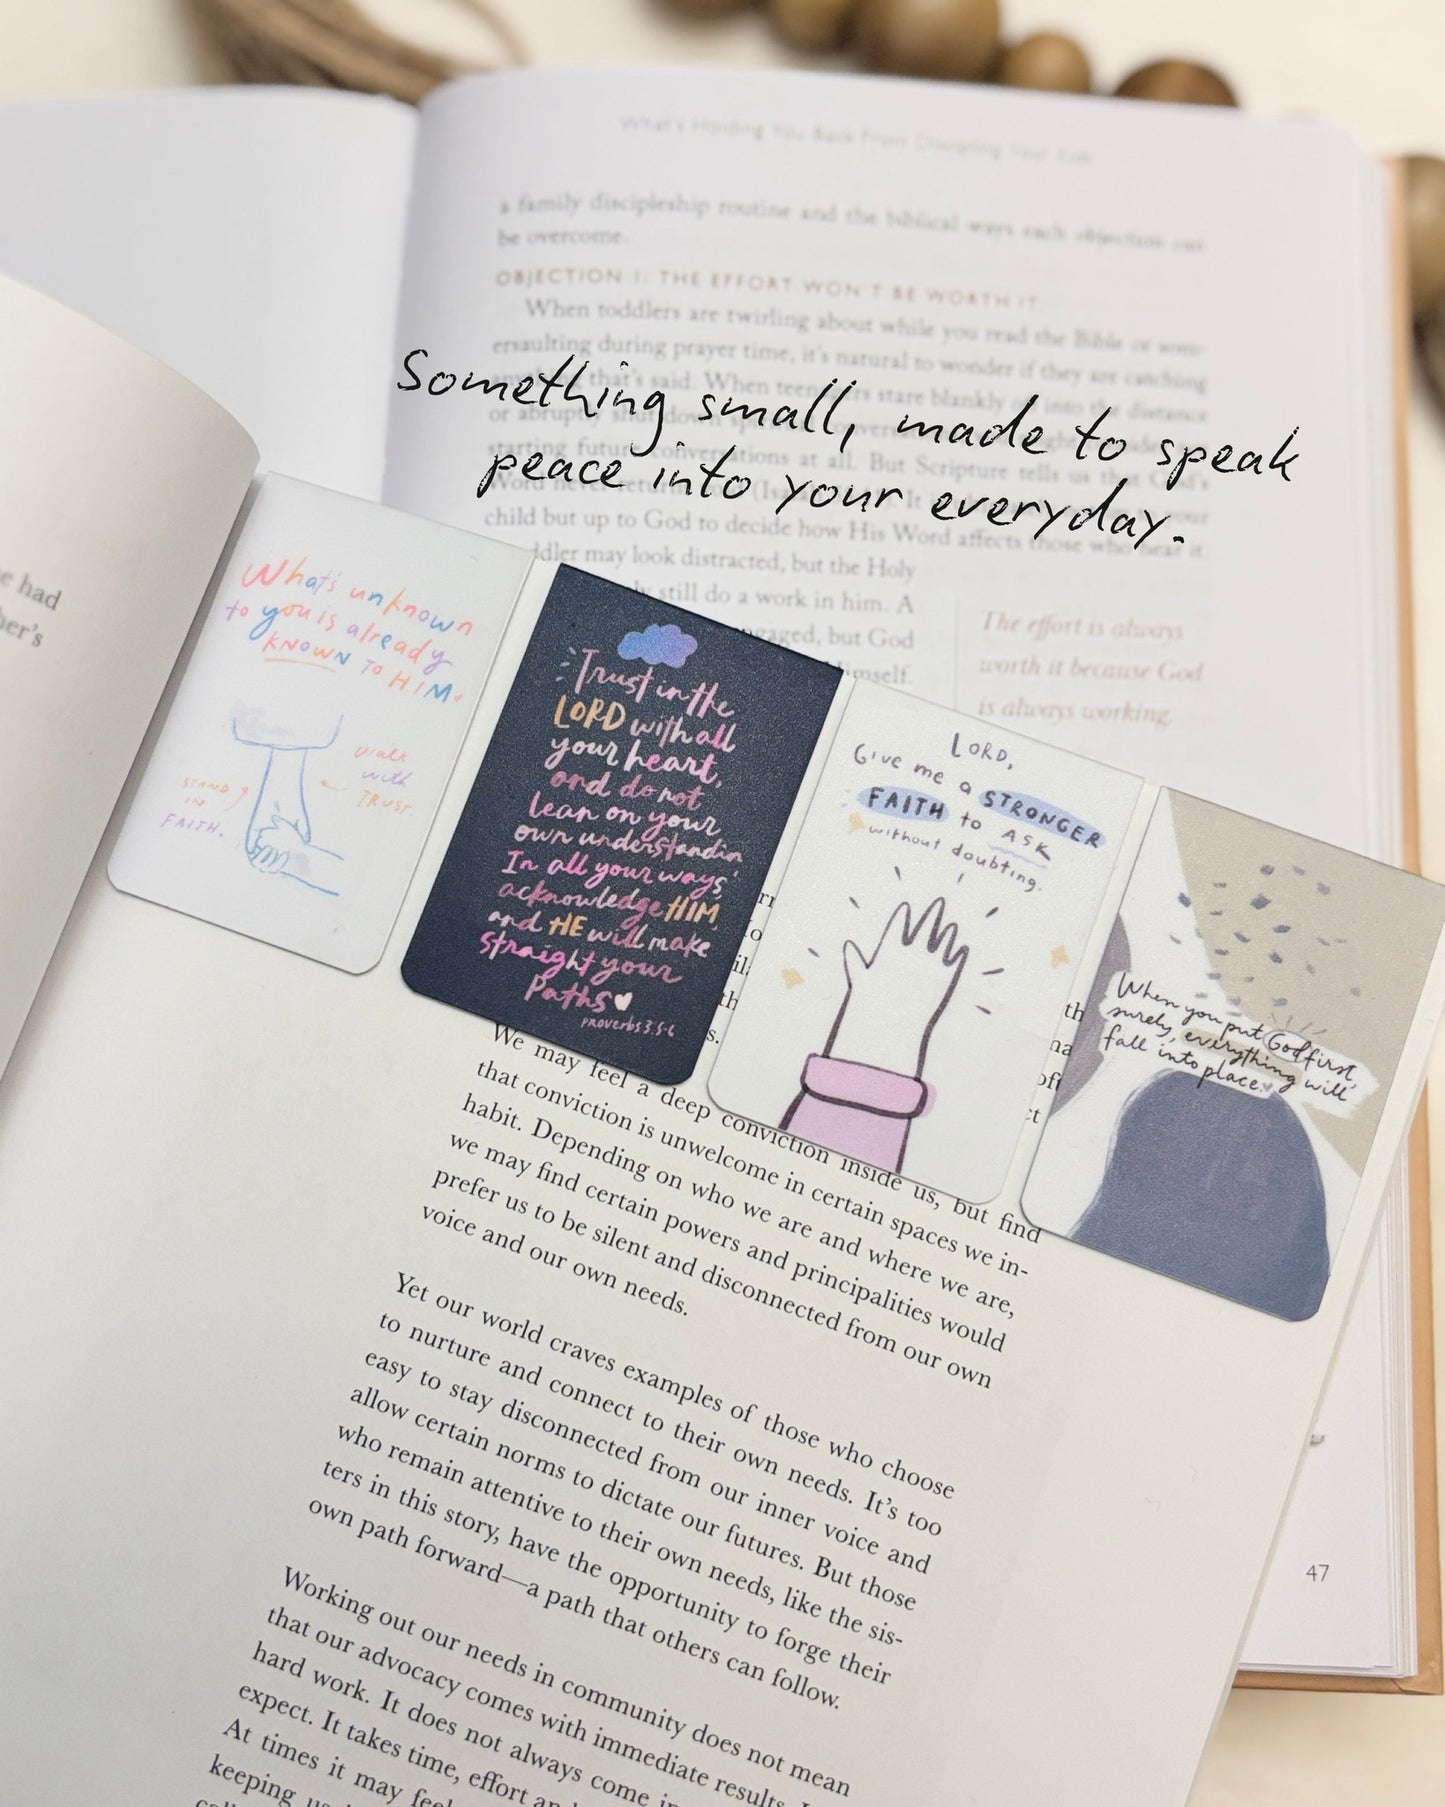 What's Holding You Back From Discipling Your Kids
a family discipleship routine and the biblical ways each objection can
be overcome.
OBJECTION 1: THE EFFORT WON'T BE WORTH IT.
When toddlers are twirling about while you read the Bible or som-
ersaulting during prayer time, it's natural to wonder if they are catching
that's said. When teenagers stare blankly into the distance
or abruptly shut down
starting future conversations at all. But Scripture tells us that God's
Word never It
child but up to God to decide how His Word affects those who hear it.
may look distracted, but the Holy
still do a work in him. A
but God
Himself.
The effort is always
worth it because God
is always working.
Something small, made to speak
peace into your everyday.
e had
her's
What's unknown
to you is already
KNOWN TO HIM.
STAND
IN
FAITH.
walk
with
TRUST.
Trust in the
LORD with all
your heart,
and do not
lean on your
own understandin
In all your ways
acknowledge HIM,
and HE will make
straight your
Paths
Proverbs 3:5-6
LORD,
Give me a STRONGER
FAITH to ASK
without doubting.
When you put God first,
surely, everything will
fall into place.
We may feel a deep conviction inside us, but find
that conviction is unwelcome in certain spaces we in-
habit. Depending on who we are and where we are,
we may find certain powers and principalities would
prefer us to be silent and disconnected from our own
voice and our own needs.
Yet our world craves examples of those who choose
to nurture and connect to their own needs. It's too
easy to stay disconnected from our inner voice and
allow certain norms to dictate our futures. But those
who remain attentive to their own needs, like the sis-
ters in this story, have the opportunity to forge their
own path forward—a path that others can follow.
Working out our needs in community does not mean
that our advocacy comes with immediate results.
hard work. It does not always come
expect. It takes time, effort an
At times it may feel
keeping
47